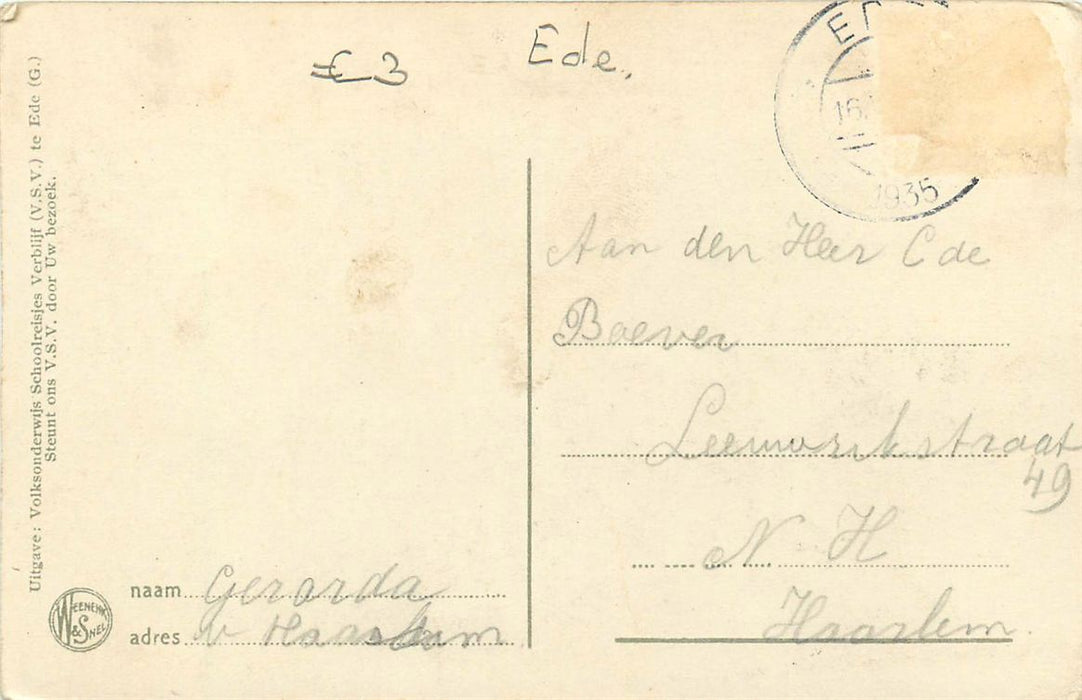 Uitgave: Volksonderwijs Schoolreisjes Verblijf (V.S.V.) te Ede (G.)
Steunt ons V.S.V. door Uw bezoek.
€ 3
Ede.
16
1935
Aan den Heer C de
Boever
Leeuwrikstraat
49
N. H
Haarlem.
naam Gerarda
adres v Haarlem
WEENENK
& SNEL